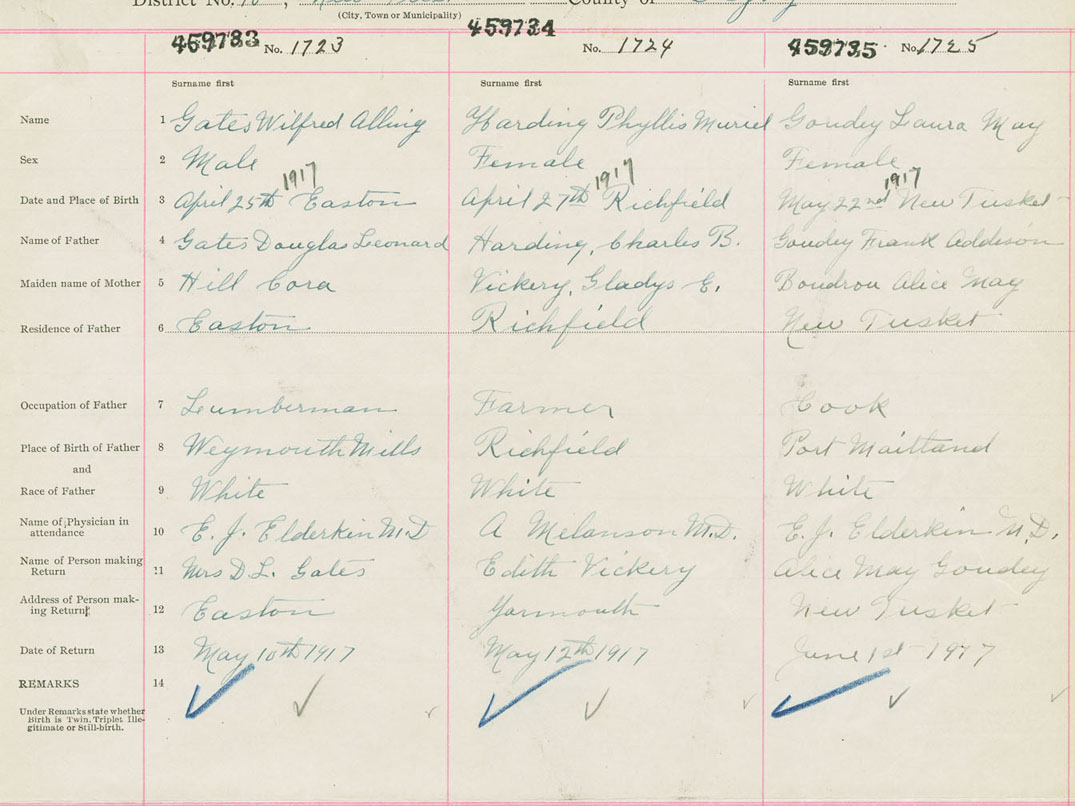 District No. , County of
(City, Town or Municipality)
459733 No. 1723 459734 No. 1724 459735 No. 1725
Surname first Surname first Surname first
Name 1 Gates Wilfred Alling Harding Phyllis Muriel Goudey Laura May
Sex 2 Male Female Female
1917 1917 1917
Date and Place of Birth 3 April 25th Easton April 27th Richfield May 22nd New Tusket
Name of Father 4 Gates Douglas Leonard Harding, Charles B. Goudey Frank Addison
Maiden name of Mother 5 Hill Cora Vickery, Gladys E. Boudrou Alice May
Residence of Father 6 Easton Richfield New Tusket
Occupation of Father 7 Lumberman Farmer Cook
Place of Birth of Father 8 Weymouth Mills Richfield Port Maitland
and
Race of Father 9 White White White
Name of Physician in
attendance 10 E. J. Elderkin M.D A Melanson M.D. E. J. Elderkin M.D.
Name of Person making
Return 11 Mrs D L. Gates Edith Vickery Alice May Goudey
Address of Person mak-
ing Return 12 Easton Yarmouth New Tusket
Date of Return 13 May 10th 1917 May 12th 1917 June 1st 1917
REMARKS 14
Under Remarks state whether
Birth is Twin, Triplet, Ille-
gitimate or Still-birth.